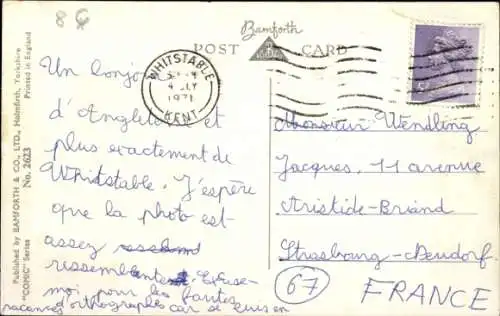 8 €
Bamforth
POST CARD
WHITSTABLE
4 JLY
1971
KENT
Un bonjour
d'Angleterre et
plus exactement de
Whitstable. J'espère
que la photo est
assez
ressemblante. Excuse-
moi pour les fautes
d'orthographes car je suis en
vacances
Monsieur Wendling
Jacques, 11 avenue
Aristide-Briand
Strasbourg-Neudorf
67
FRANCE
Published by BAMFORTH & CO., LTD., Holmfirth, Yorkshire
Printed in England
"COMIC" Series No. 2623